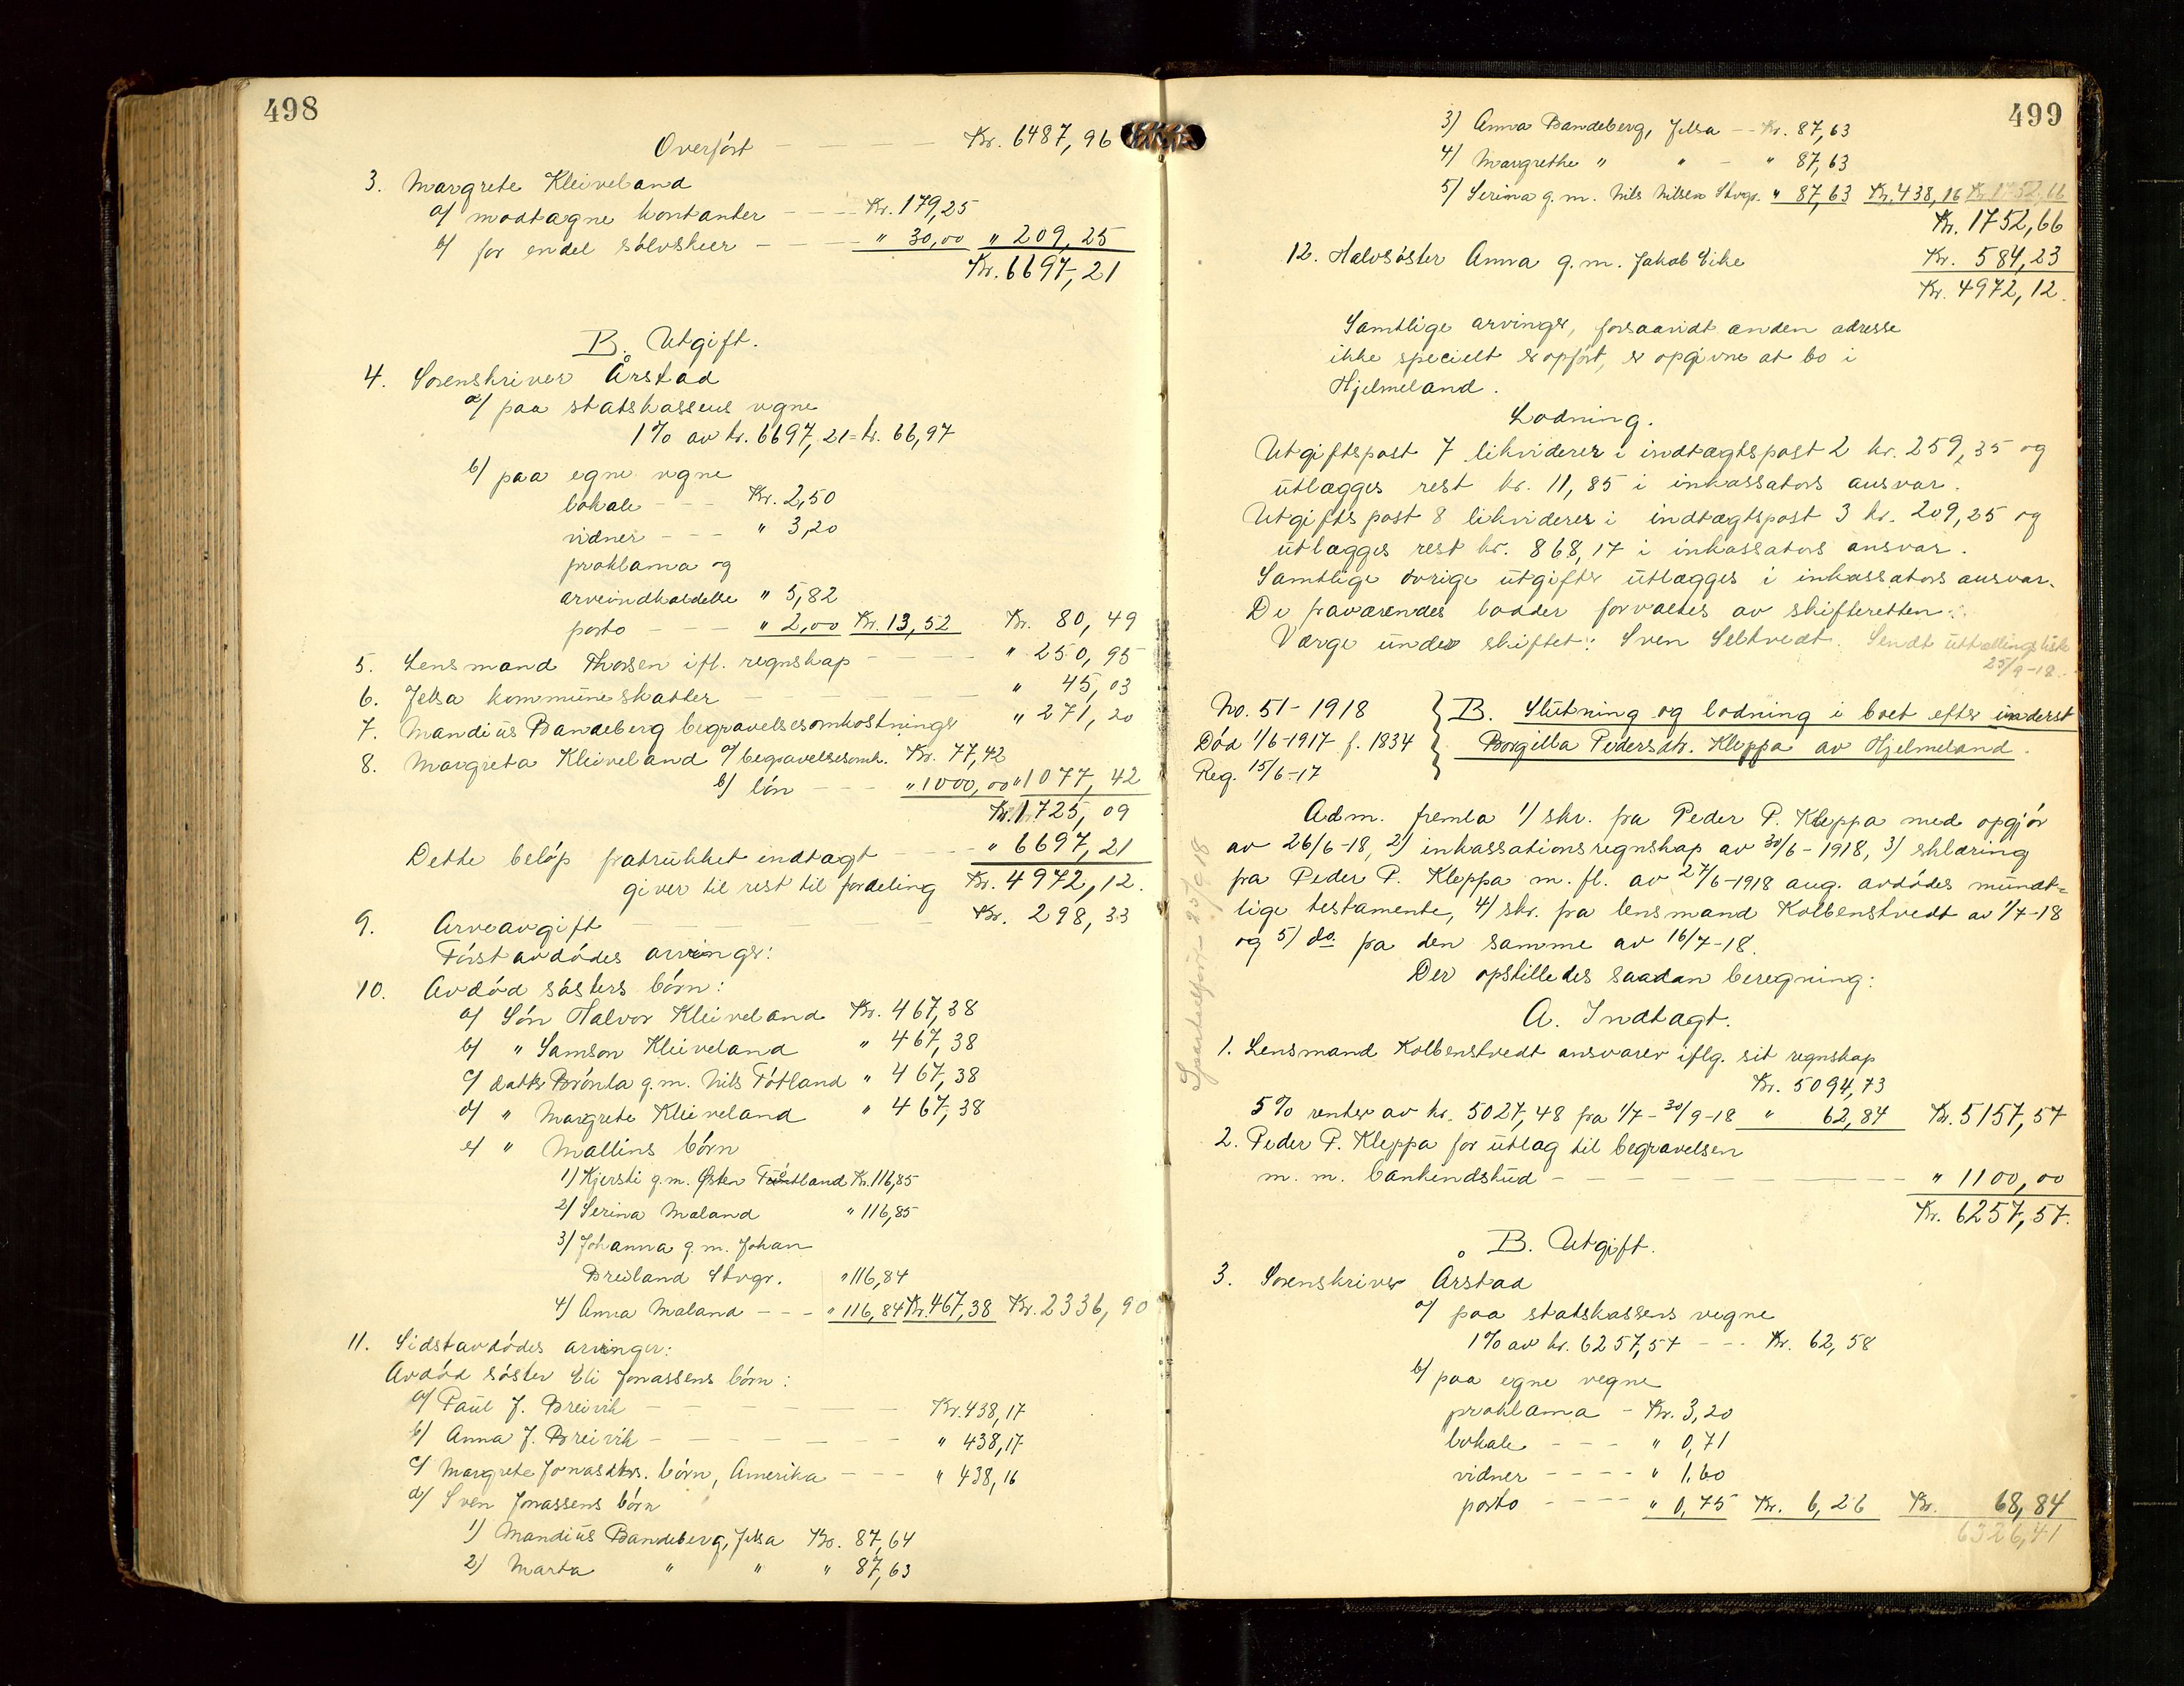 498
Overført - - - - Kr. 6487,96
3. Margrete Kleiveland
a/ modtagne kontanter - - - Kr. 179,25
b/ for endel sølvskeer - - - " 30,00 " 209,25
Kr. 6697,21
B. Utgift.
4. Sorenskriver Årstad
a/ paa statskassens vegne
1% av kr. 6697,21 = kr. 66,97
b/ paa egne vegne
lokale - - - Kr. 2,50
vidner - - - " 3,20
proklama og
arveindkaldelse " 5,82
porto - - - " 2,00 Kr. 13,52 Kr. 80,49
5. Lensmand Thorsen ifl. regnskap - - - - " 250,95
6. Jelsa kommune skatter - - - - - " 45,03
7. Mandius Bandeberg begravelsesomkostninger " 271,20
8. Margreta Kleiveland a/ begravelsesomk. Kr. 77,42
b/ løn - - - " 1000,00 " 1077,42
Kr. 1725,09
Dette beløp fratrukket indtægt - - - " 6697,21
giver til rest til fordeling Kr. 4972,12.
9. Arveavgift - - - - - Kr. 298,33
Førstavdødes arvinger:
10. Avdød søsters børn:
a/ Søn Halvor Kleiveland Kr. 467,38
b/ " Samson Kleiveland " 467,38
c/ datter Brønla g.m. Nils Tøtland " 467,38
d/ " Margrete Kleiveland " 467,38
e/ " Mallins børn
1) Kjersti g.m. Østen Tøtland Kr. 116,85
2) Serina Maland " 116,85
3) Johanna g.m. Johan
Breiland Stvgr. " 116,84
4) Anna Maland - - - " 116,84 Kr. 467,38 Kr. 2336,90
11. Sidstavdødes arvinger:
Avdød søster Eli Jonassens børn:
a/ Paul J. Breivik - - - - - - Kr. 438,17
b/ Anna J. Breivik - - - - - - " 438,17
c/ Margrete Jonasdtrs. børn, Amerika - - - " 438,16
d/ Sven Jonassens børn
1) Mandius Bandeberg, Jelsa Kr. 87,64
2) Marta " " " 87,63
499
3) Anna Bandeberg, Jelsa - - Kr. 87,63
4) Margrethe " " - " 87,63
5) Serina g.m. Nils Nilsen Stvgr. " 87,63 Kr. 438,16 Kr. 1752,66
Kr. 1752,66
12. Halvsøster Anna g.m. Jakob Eike Kr. 584,23
Kr. 4972,12.
Samtlige arvinger, forsaavidt anden adresse
ikke specielt er opført, er opgivne at bo i
Hjelmeland.
Lodning.
Utgiftspost 7 likviderer i indtægtspost 2 kr. 259,35 og
utlægges rest kr. 11,85 i inkassators ansvar.
Utgiftspost 8 likviderer i indtægtspost 3 kr. 209,25 og
utlægges rest kr. 868,17 i inkassators ansvar.
Samtlige øvrige utgifter utlægges i inkassators ansvar.
De fraværendes lodder forvaltes av skifteretten.
Værge under skiftet: Sven Selstvedt. Sendt uttællingsliste
25/9-18.
No. 51 - 1918 } B. Slutning og lodning i boet efter inderst
Død 1/6-1917 f. 1834 } Borgilla Pedersdtr. Kleppa av Hjelmeland.
Reg. 15/6-17
Adm. fremla 1/ skr. fra Peder P. Kleppa med opgjør
av 26/6-18, 2) inkassationsregnskap av 30/6-1918, 3) erklæring
fra Peder P. Kleppa m. fl. av 27/6-1918 ang. avdødes mundt=
lige testamente, 4/ skr. fra lensmand Kolbenstvedt av 1/7-18
og 5/ do. fra den samme av 16/7-18.
Der opstilledes saadan beregning:
A. Indtægt.
1. Lensmand Kolbenstvedt ansvarer iflg. sit regnskap
Kr. 5094,73
5% renter av kr. 5027,48 fra 1/7-30/9-18 " 62,84 Kr. 5157,57
2. Peder P. Kleppa for utlæg til begravelsen
m. m. bankindskud - - - - - - - " 1100,00
Kr. 6257,57.
B. Utgift.
3. Sorenskriver Årstad
a/ paa statskassens vegne
1% av kr. 6257,57 - - - Kr. 62,58
b/ paa egne vegne
proklama - Kr. 3,20
lokale - - - " 0,71
vidner - - - - " 1,60
porto - - - - " 0,75 Kr. 6,26 Kr. 68,84
6326,41